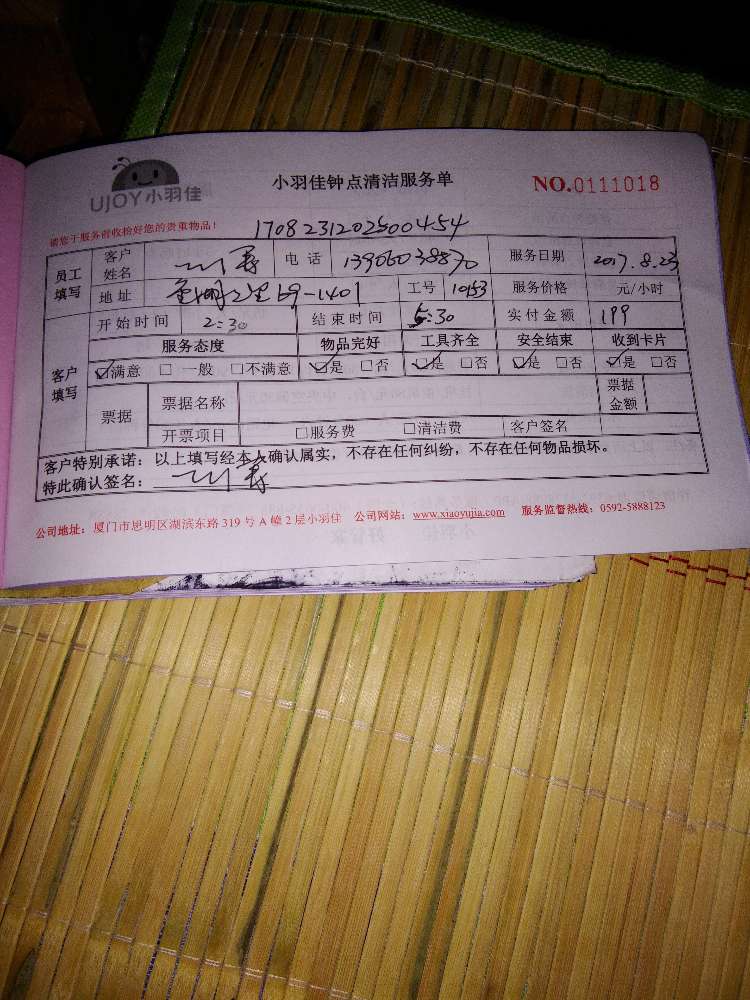 UJOY小羽佳
小羽佳钟点清洁服务单
NO.0111018
请您于服务前收检好您的贵重物品!
员工填写 客户姓名 电话 13906038870 服务日期 2017.8.23
地址 69-1401 工号 10153 服务价格 元/小时
客户填写 开始时间 2:30 结束时间 5:30 实付金额 199
服务态度 物品完好 工具齐全 安全结束 收到卡片
☑满意 □一般 □不满意 ☑是 □否 ☑是 □否 ☑是 □否 ☑是 □否
票据 票据名称 票据金额
开票项目 □服务费 □清洁费 客户签名
客户特别承诺:以上填写经本人确认属实,不存在任何纠纷,不存在任何物品损坏。
特此确认签名:
公司地址:厦门市思明区湖滨东路 319 号 A 幢 2 层小羽佳 公司网站:www.xiaoyujia.com 服务监督热线:0592-5888123